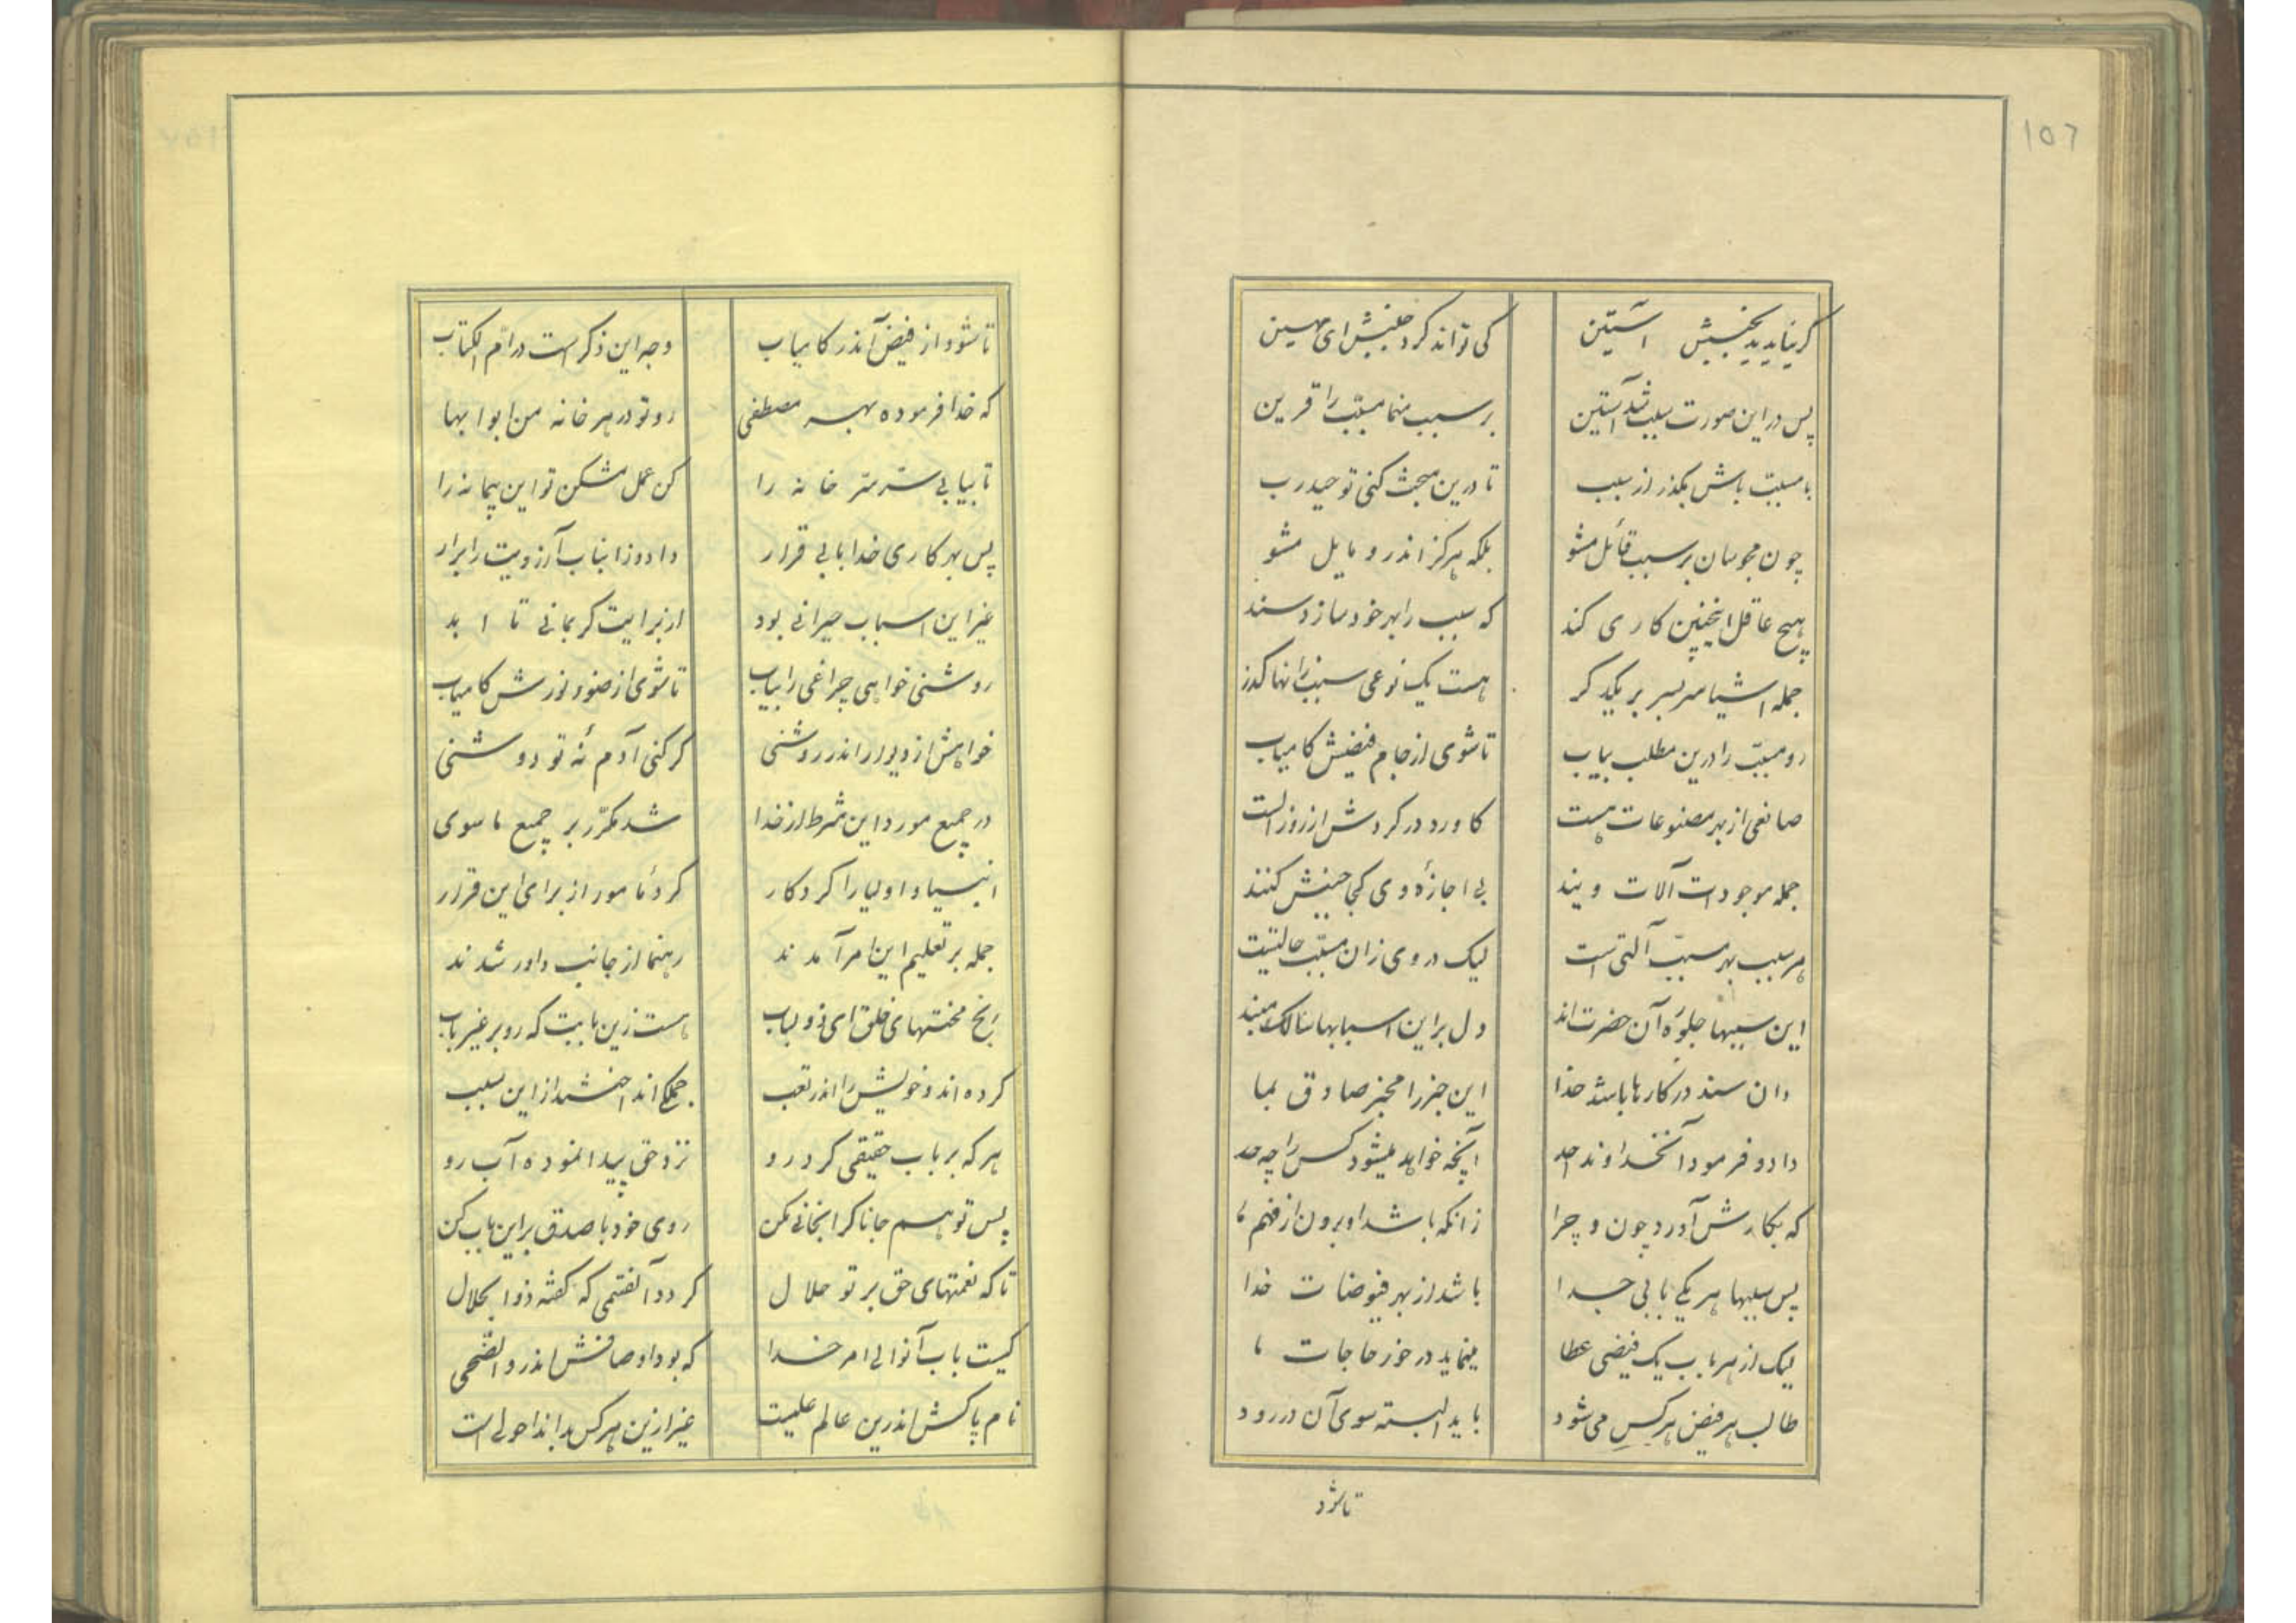 ۱۵۶
گر نیاید بجنبش آستین
کی تواند کرد جنبش ای مهین
پس در این صورت سبب شد آستین
بر سبب منما مسبّب را قرین
با مسبّب باش بگذر از سبب
تا درین مبحث کنی توحید رب
چون مجوسان بر سبب قائل مشو
بلکه هرگز اندرو مایل مشو
هیچ عاقل اینچنین کاری کند
که سبب را بهر خود سازد سند
جمله اشیا سربسر بر یکدگر
هست یک نوعی سبب زانها گذر
رو مسبّب را درین مطلب بیاب
تا شوی از جام فیضش کامیاب
صانعی از بهر مصنوعات هست
کاورد در گردش از روز الست
جمله موجودات آلات ویند
بی اجازهٔ وی کجا جنبش کنند
هر سبب بهر مسبّب آلتی است
لیک در وی زان مسبّب حالتیست
این سببها جلوهٔ آن حضرت‌اند
دل بر این اسبابها سالک مبند
دان سند در کارها باشد خدا
این خبر را مخبر صادق بما
داد و فرمود آنخداوند احد
آنچه خواهد میشود کس را چه حد
که بکارش آورد چون و چرا
زانکه باشد او برون از فهم ما
پس سببها هر یکی بابی جدا
باشد از بهر فیوضات خدا
لیک از هر باب یک فیضی عطا
مینماید در خور حاجات ما
طالب هر فیض هر کس می‌شود
باید البته سوی آن در رود
تا شود
تا شود از فیض آندر کامیاب
وجه این ذکر است در امّ الکتاب
که خدا فرموده بهر مصطفی
رو تو در هر خانه من ابوابها
تا بیابی سرّ ستر خانه را
کن عمل مشکن تو این پیمانه را
پس بهر کاری خدا بابی قرار
داد و زان باب آرزویت را برار
غیر این اسباب حیرانی بود
از برایت گر بمانی تا ابد
روشنی خواهی چراغی را بیاب
تا شوی از ضوء نورش کامیاب
خواهش از دیوار اندر روشنی
گر کنی آدم نهٔ تو دوشنی
در جمیع مورد این شرط از خدا
شد مکرّر بر جمیع ماسوی
انبیا و اولیا را کردگار
کرد مامور از برای این قرار
جمله بر تعلیم این امر آمدند
رهنما از جانب داور شدند
رنج محنتهای خلق ای ذولباب
هست زین بابت که رو بر غیر باب
کرده‌اند و خویش را اندر تعب
جملگی انداختند از این سبب
هر که بر باب حقیقی کرد رو
نزد حق پیدا نموده آب رو
پس تو هم جانا گر انجانی مکن
روی خود با صدق بر این باب کن
تا که نعمتهای حق بر تو حلال
گردد آنقسمی که گفته ذوالجلال
کیست باب آنوالی امر خدا
که بود اوصافش اندر والضّحی
نام پاکش اندرین عالم علیست
غیر ازین هر کس بداند احولی است